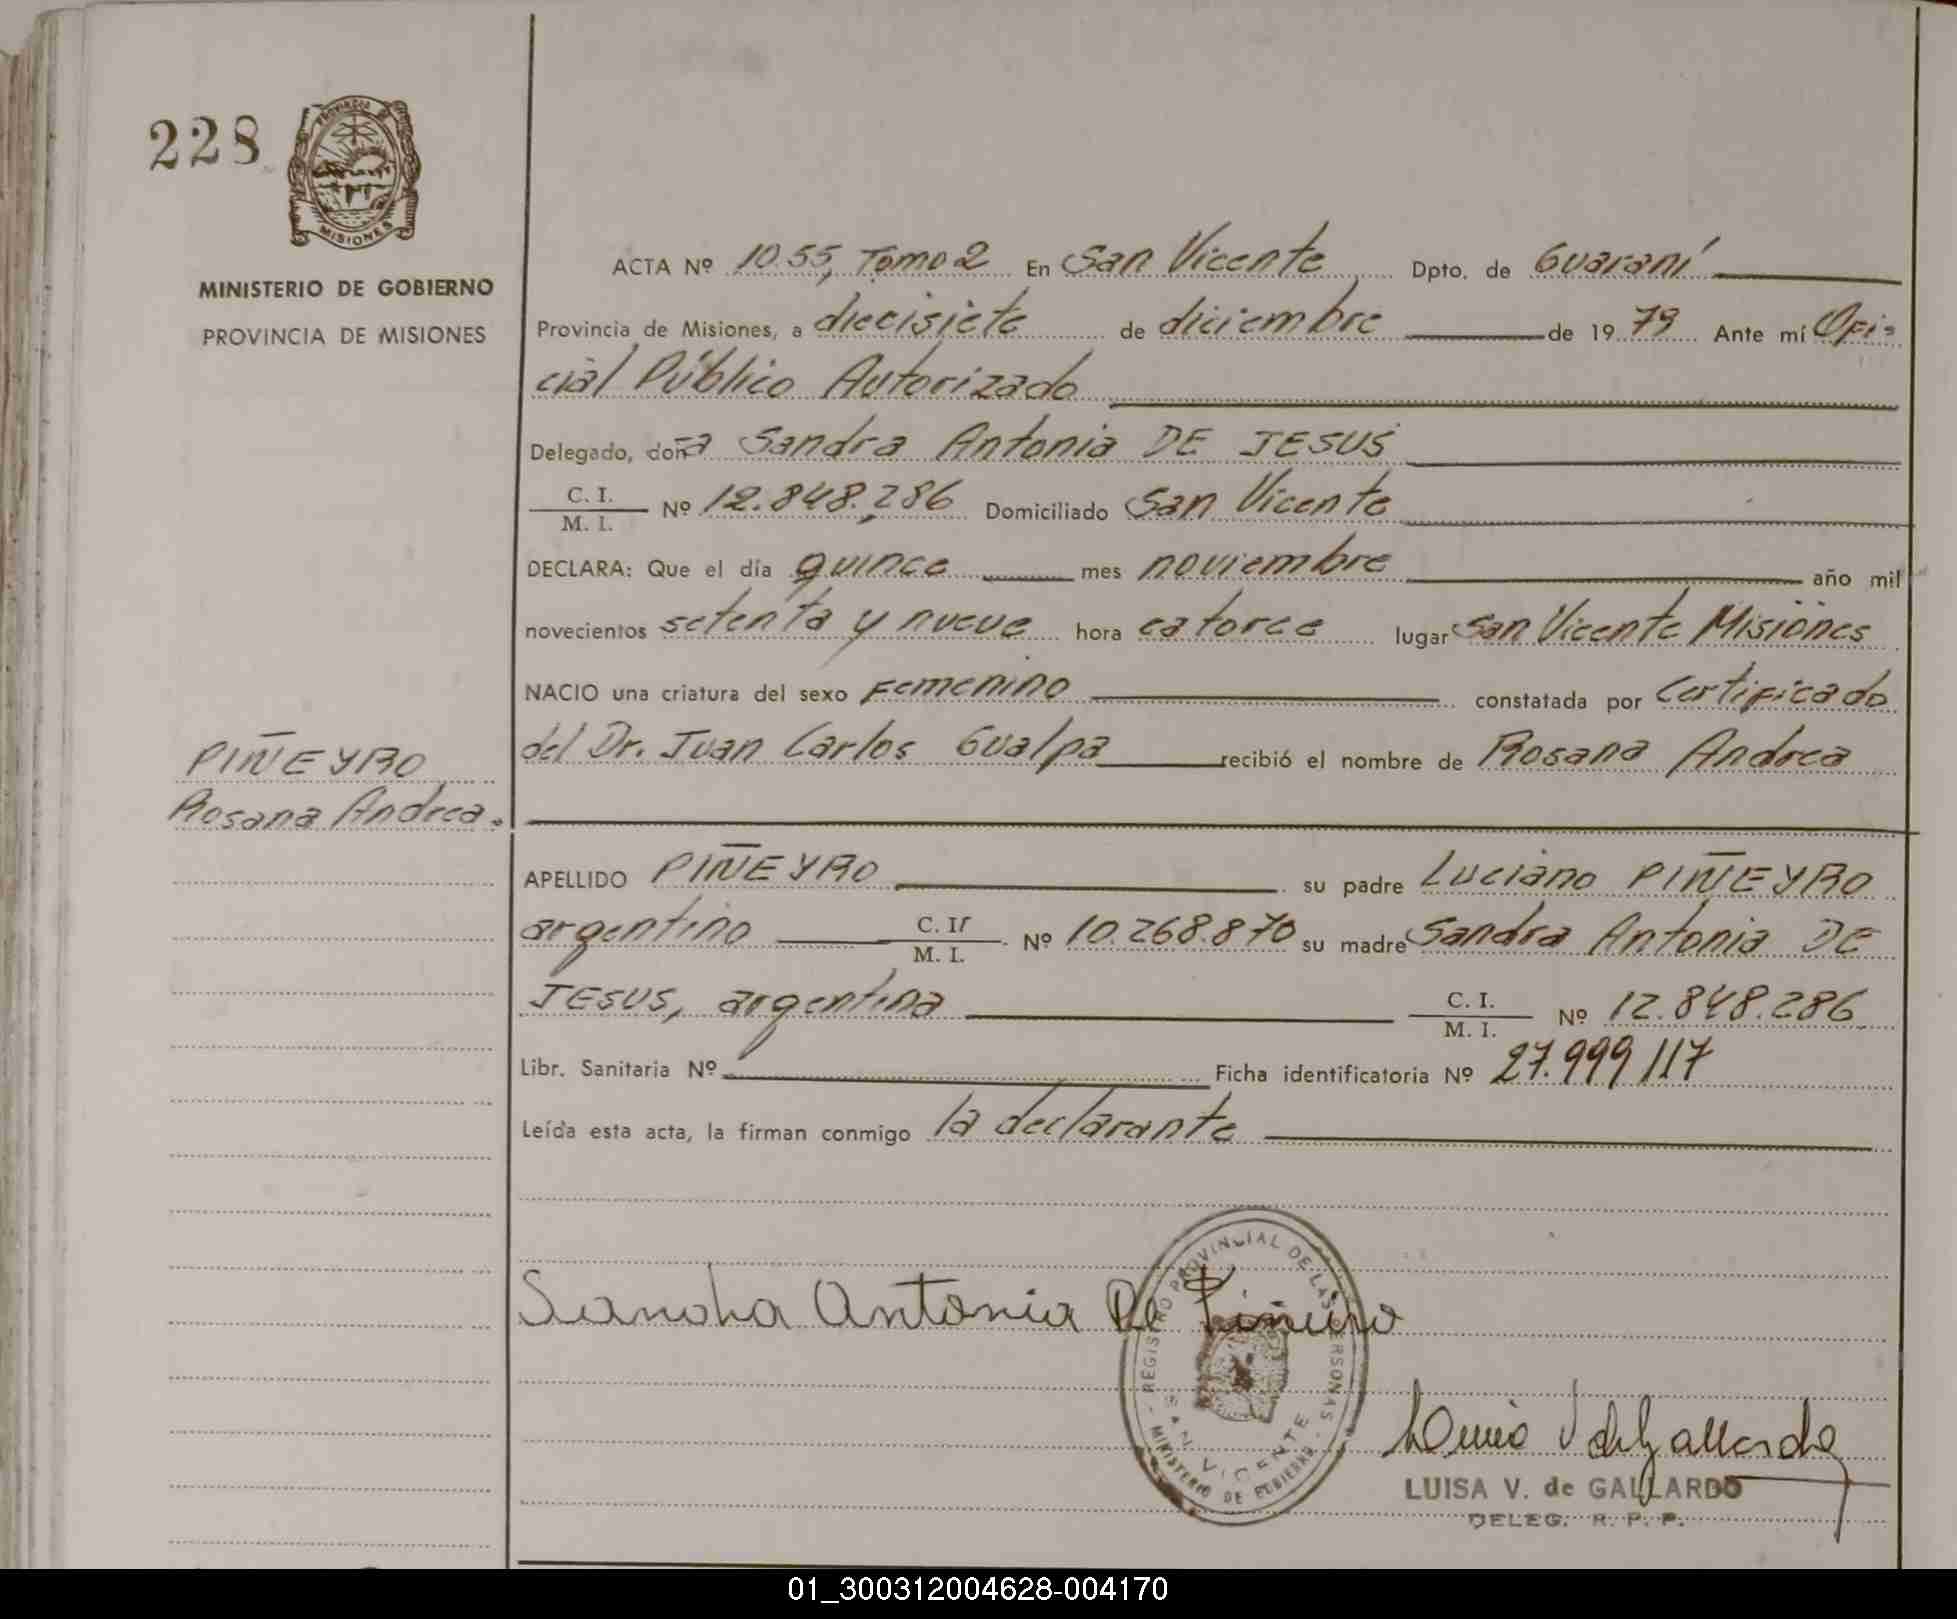 228
PROVINCIA
MISIONES
MINISTERIO DE GOBIERNO
PROVINCIA DE MISIONES
ACTA Nº 1055, Tomo 2 En San Vicente Dpto. de Guaraní
Provincia de Misiones, a diecisiete de diciembre de 19 79 Ante mí Ofi-
cial Público Autorizado
Delegado, doña Sandra Antonia DE JESUS
C. I.
M. I. Nº 12.848.286 Domiciliado San Vicente
DECLARA: Que el día quince mes noviembre año mil
novecientos setenta y nueve hora catorce lugar San Vicente Misiones
NACIO una criatura del sexo Femenino constatada por Certificado
del Dr. Juan Carlos Gualpa recibió el nombre de Rosana Andrea
PIÑEYRO
Rosana Andrea.
APELLIDO PIÑEYRO su padre Luciano PIÑEYRO
argentino C. I.
M. I. Nº 10.268.870 su madre Sandra Antonia DE
JESUS, argentina C. I.
M. I. Nº 12.848.286
Libr. Sanitaria Nº Ficha identificatoria Nº 27.999117
Leída esta acta, la firman conmigo la declarante
Sandra Antonia De Piñeiro
REGISTRO PROVINCIAL DE LAS PERSONAS
SAN VICENTE
MINISTERIO DE GOBIERNO
Luisa V de Gallardo
LUISA V. de GALLARDO
DELEG. R. P. P.
01_300312004628-004170